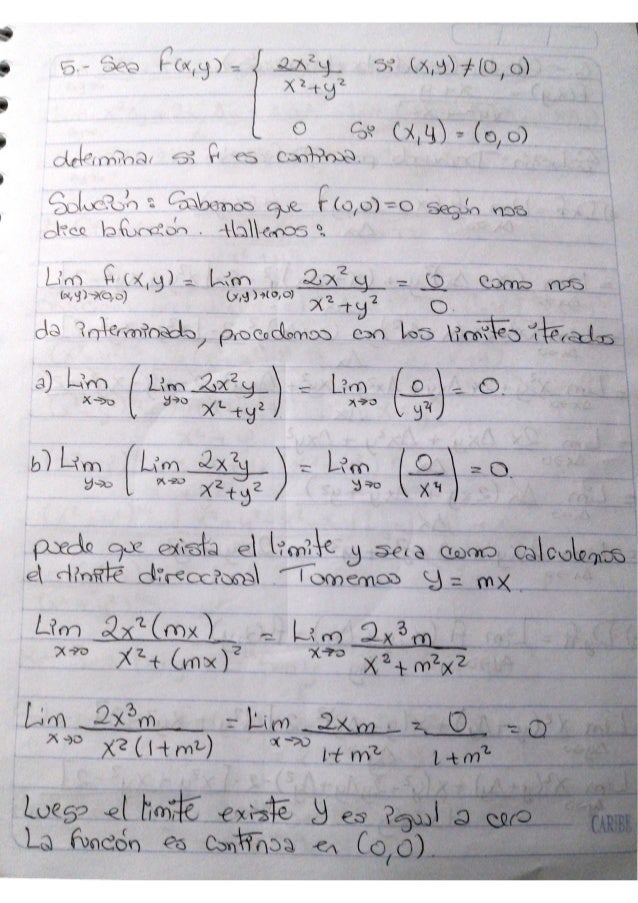 5.- Sea f(x,y) = { 2x²y / x²+y² si (x,y) ≠ (0,0)
0 si (x,y) = (0,0)
determinar si f es continua.
Solución: Sabemos que f(0,0)=0 según nos
dice la función. Hallemos:
Lim (x,y)→(0,0) f(x,y) = Lim (x,y)→(0,0) 2x²y / x²+y² = 0/0 como nos
da interminado, procedemos con los limites iterados
a) Lim x→0 ( Lim y→0 2x²y / x²+y² ) = Lim x→0 ( 0 / y⁴ ) = 0.
b) Lim y→0 ( Lim x→0 2x²y / x²+y² ) = Lim y→0 ( 0 / x⁴ ) = 0.
puede que exista el limite y sera como calculemos
el limite direccional. Tomemos y = mx.
Lim x→0 2x²(mx) / x²+(mx)² = Lim x→0 2x³m / x²+m²x²
Lim x→0 2x³m / x²(1+m²) = Lim x→0 2xm / 1+m² = 0 / 1+m² = 0
Luego el limite existe y es igual a cero
CARIBE
La función es continua en (0,0).